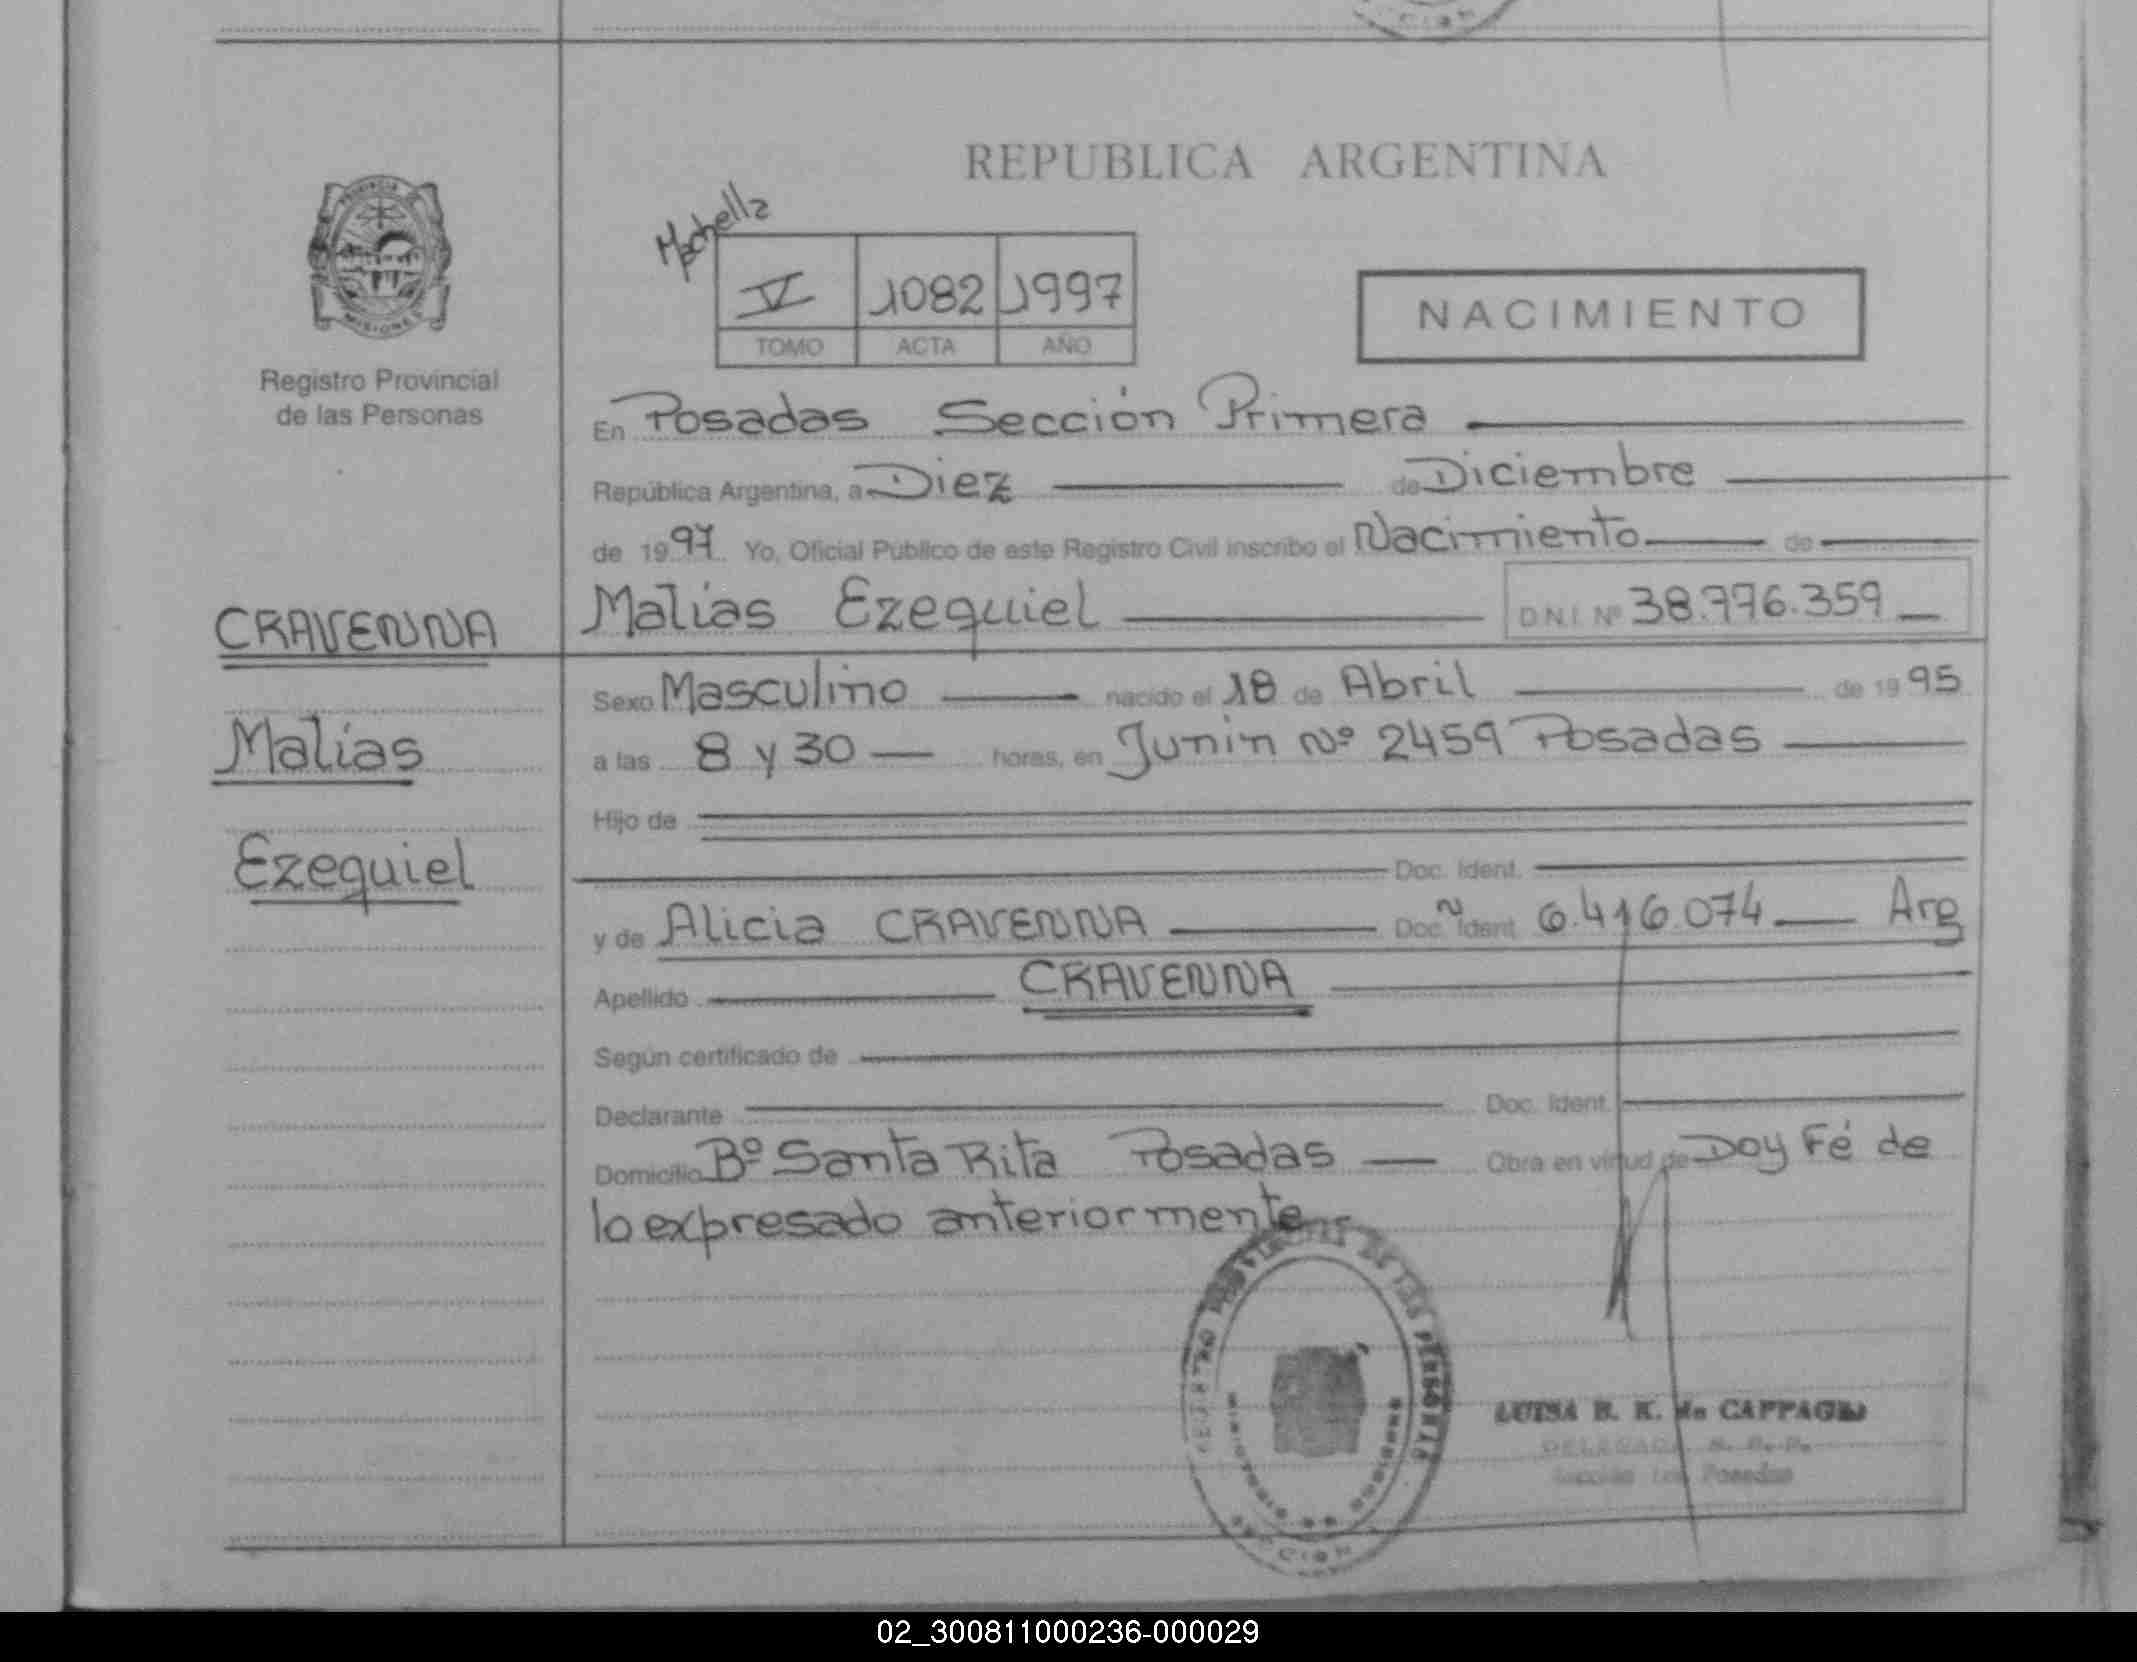 REPUBLICA ARGENTINA
Machella
V 1082 1997
TOMO ACTA AÑO
NACIMIENTO
MISIONES
Registro Provincial
de las Personas
En Posadas Sección Primera
República Argentina, a Diez de Diciembre
de 1997 Yo, Oficial Público de este Registro Civil inscribo el Nacimiento de
Malías Ezequiel D.N.I. Nº 38.776.359
CRAVENNA
Malías
Ezequiel
Sexo Masculino nacido el 18 de Abril de 1995
a las 8 y 30 horas, en Junin Nº 2459 Posadas
Hijo de
Doc. Ident.
y de Alicia CRAVENNA Doc. Ident. 6.416.074 Arg
Apellido CRAVENNA
Según certificado de
Declarante Doc. Ident.
Domicilio Bº Santa Rita Posadas Obra en virtud de Doy Fé de
lo expresado anteriormente
LUISA B. K. de CAPPAGLI
DELEGADA R. P. P.
Posadas
SECCION
02_300811000236-000029